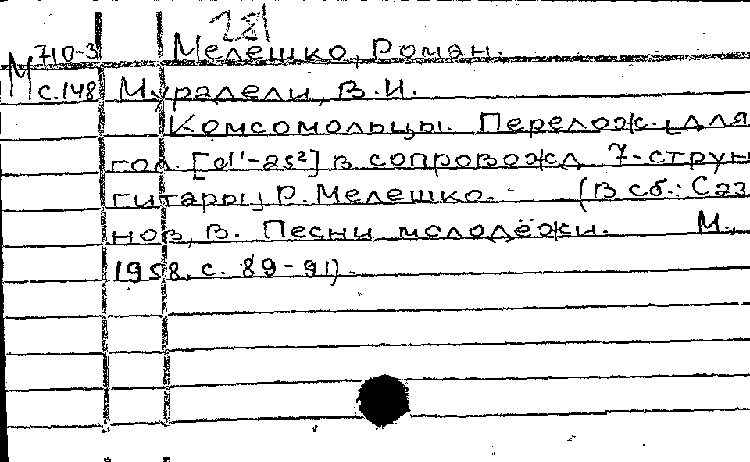 281
М 710-3 Мелешко, Роман.
с.148 Мурадели, В.И.
Комсомольцы. Перелож. [для
гол. [d¹-as²] в сопровожд 7-струн
гитары] Р. Мелешко. - (В сб.: Саз
нов, В. Песни молодёжи. М.,
1958. с. 89-91).